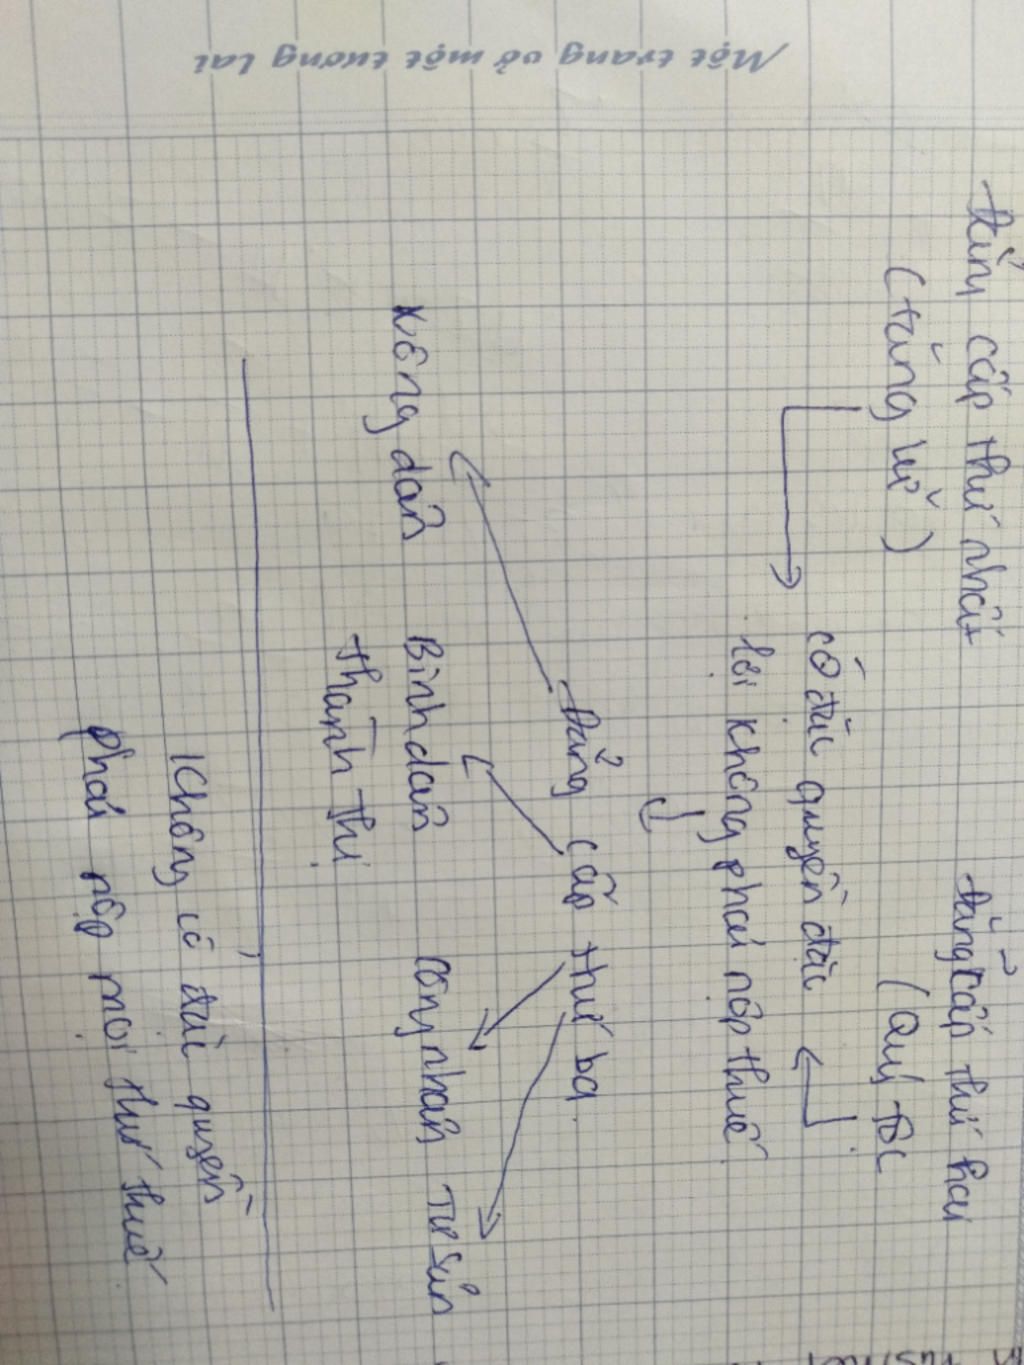 Một trang vở một tương lai
Đẳng cấp thứ nhất
(tăng lữ)
Đẳng cấp thứ hai
(Quý tộc
có đặc quyền đặc
lợi không phải nộp thuế
Đẳng cấp thứ ba
Nông dân
Bình dân
thành thị
công nhân
Tư sản
Không có đặc quyền
phải nộp mọi thứ thuế